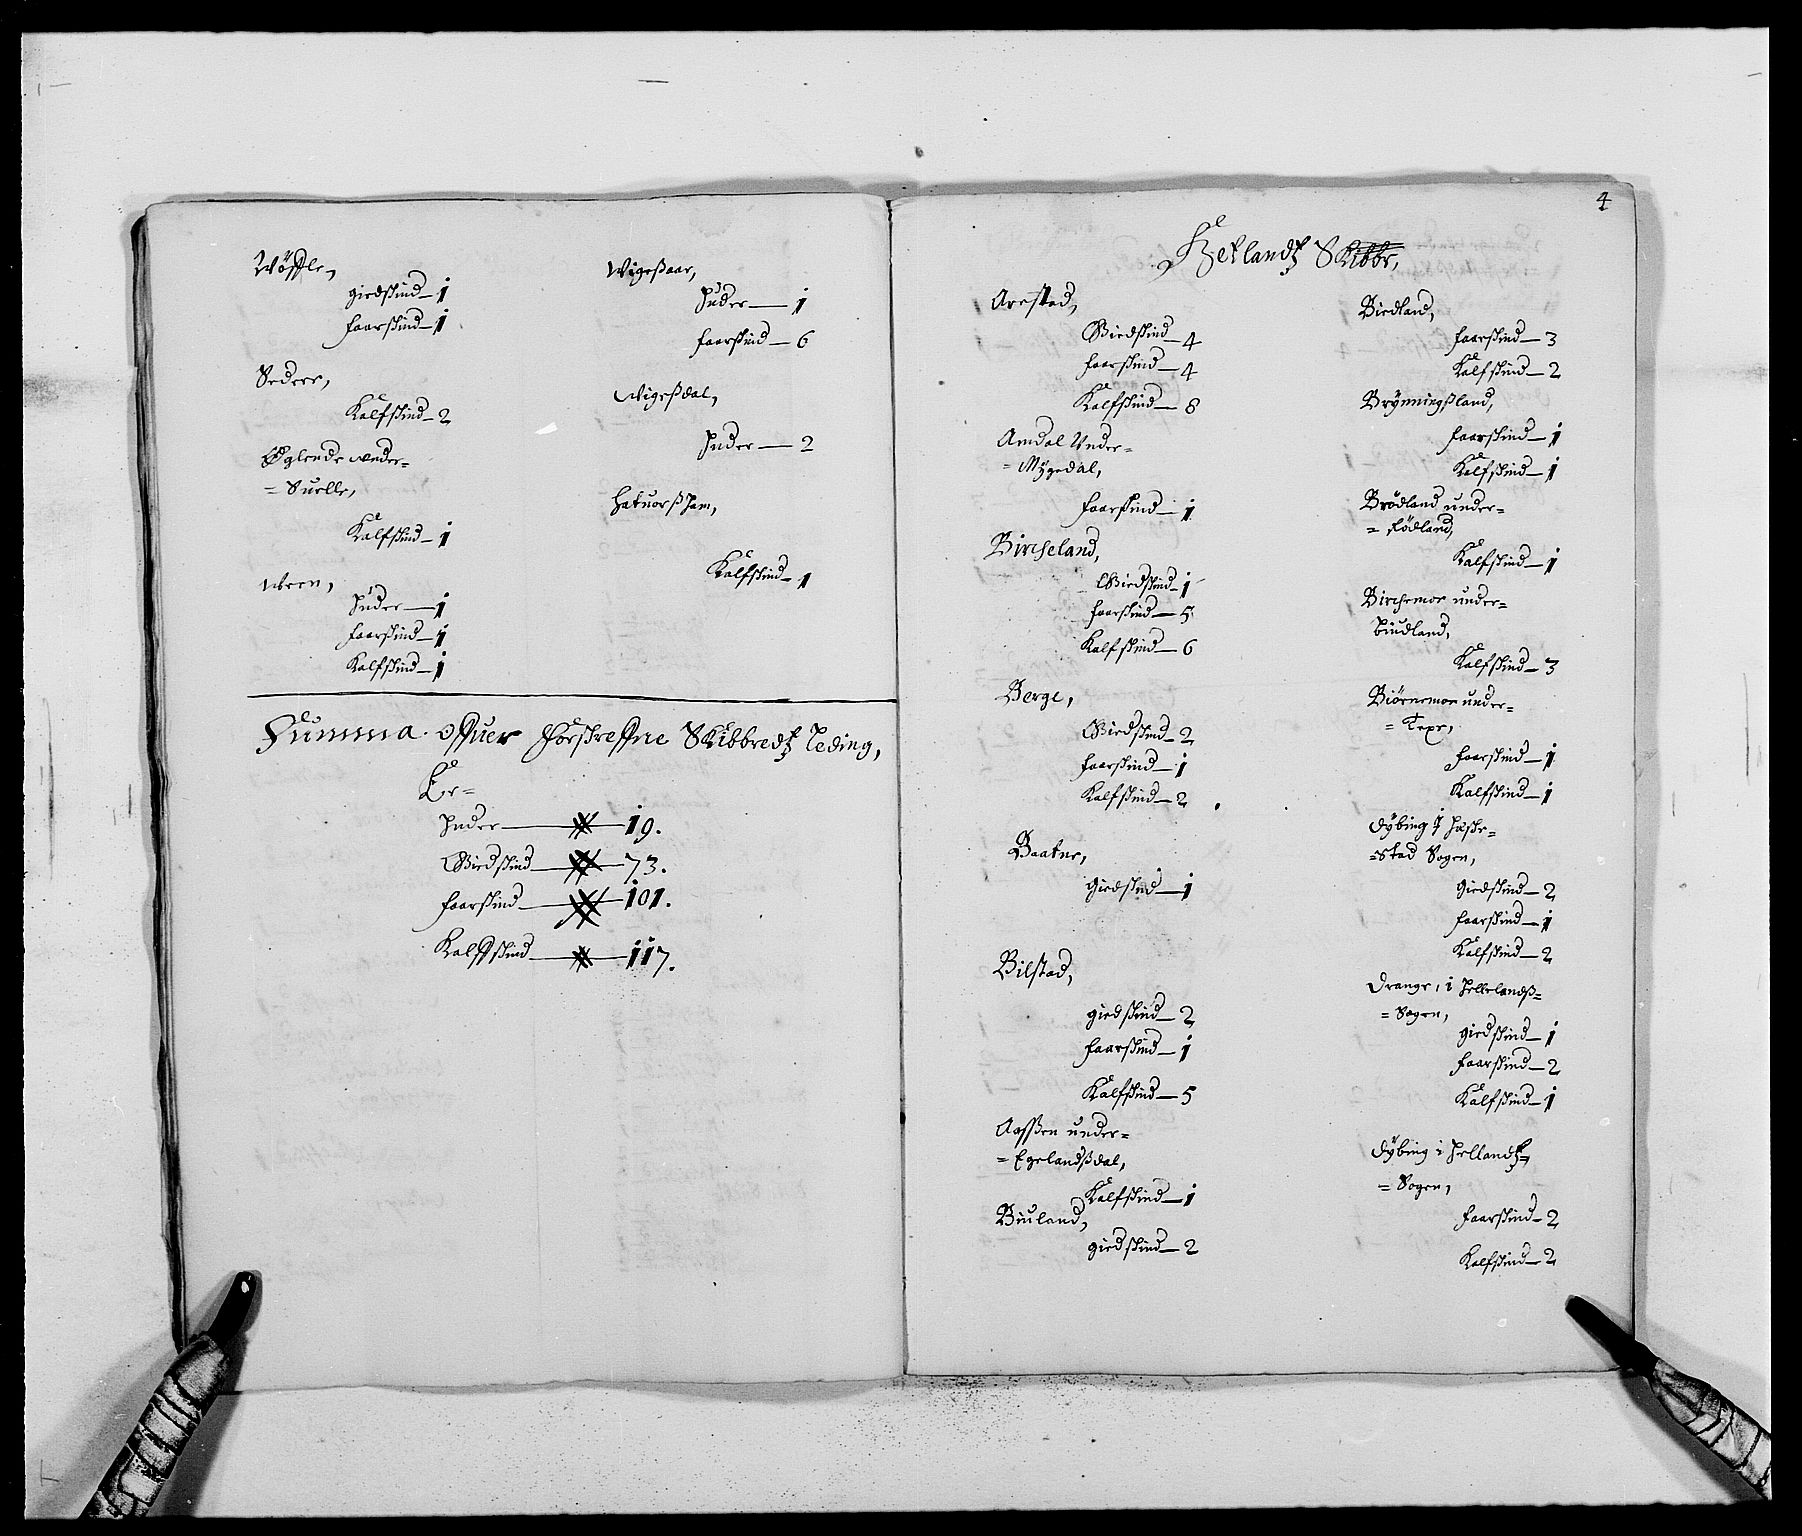 Wösle,
giedskind - 1
faarskind - 1
Sedere,
Kalfskind - 2
Øglende under=
= Suelle,
Kalfskind - 1
Ween,
Huder - 1
faarskind - 1
Kalfskind - 1
Wigeßaae,
Huder - 1
faarskind - 6
Wigeßdal,
Huder - 2
Hatuorßham,
Kalfskind - 1
Summa offuer Forskreffne Skibbredtz Leding,
Er=
Huder - 19.
Giedskind - 73.
faarskind - 101.
Kalffskind - 117.
4
Hetlandtz Skibbr,
Arestad,
Giedskind - 4
faarskind - 4
Kalfskind - 8
Amdal Under=
= Mygedal,
faarskind - 1
Bircheland,
Giedskind - 1
faarskind - 5
Kalfskind - 6
Berge,
Giedskind - 2
faarskind - 1
Kalfskind - 2
Baatne,
giedskind - 1
Bilstad,
giedskind - 2
faarskind - 1
Kalfskind - 5
Aaßen under=
= Egelandßdal,
Kalfskind - 1
Biuland,
giedskind - 2
Biedland,
faarskind - 3
Kalfskind - 2
Brynningßland,
faarskind - 1
Kalfskind - 1
Brödland under=
= Rödland,
Kalfskind - 1
Birchemoe under=
Biudland,
Kalfskind - 3
Biörnemoe under=
= Texe,
faarskind - 1
Kalfskind - 1
Dybing I Haske=
=stad Sogen,
giedskind - 2
faarskind - 1
Kalfskind - 2
Drange, i Hellelandß=
= Sogen,
giedskind - 1
faarskind - 2
Kalfskind - 1
Dybing i Hellandtz=
= Sogen,
faarskind - 2
Kalfskind - 2